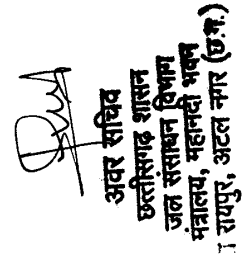 अवर सचिव
छत्तीसगढ़ शासन
जल संसाधन विभाग
मंत्रालय, महानदी भवन
रायपुर, अटल नगर (छ.ग.)